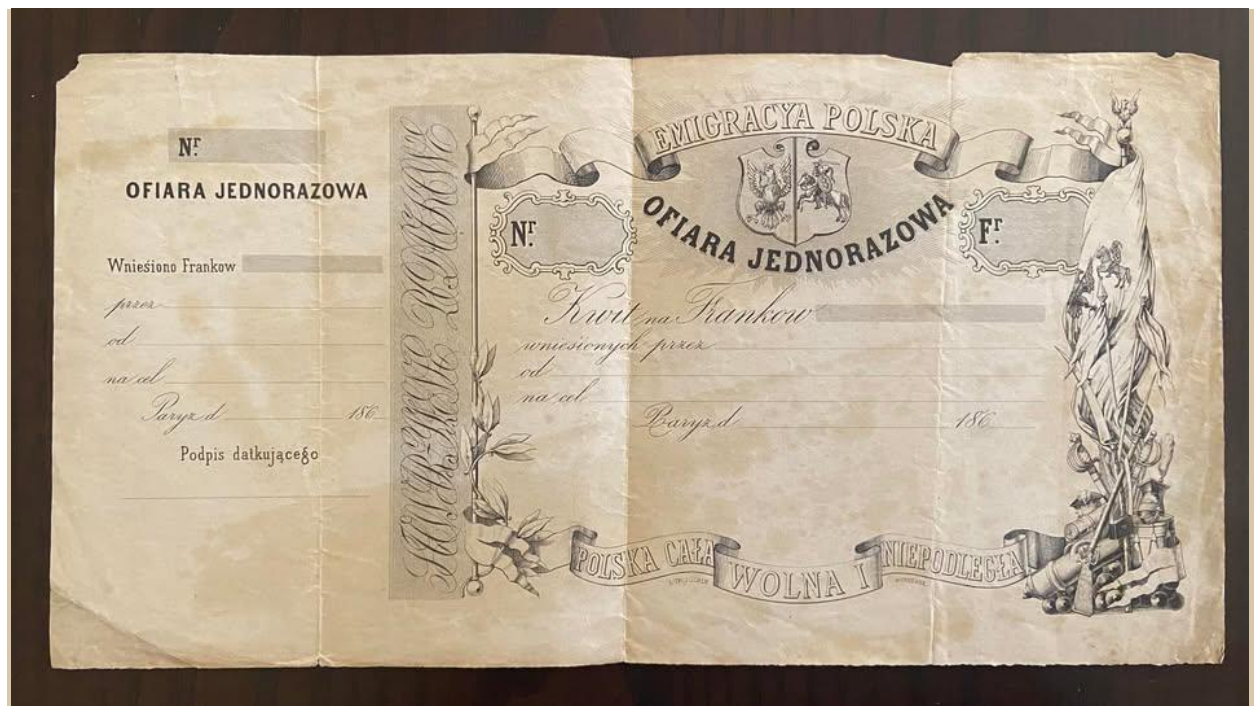 Nr.
OFIARA JEDNORAZOWA
Wniesiono Frankow
przez
od
na cel
Paryż d 186
Podpis datkującego
EMIGRACYA POLSKA
OFIARA JEDNORAZOWA
Nr.
Fr.
Kwit na Frankow
wniesionych przez
od
na cel
Paryż d 186
POLSKA CAŁA
WOLNA I
NIEPODLEGŁA